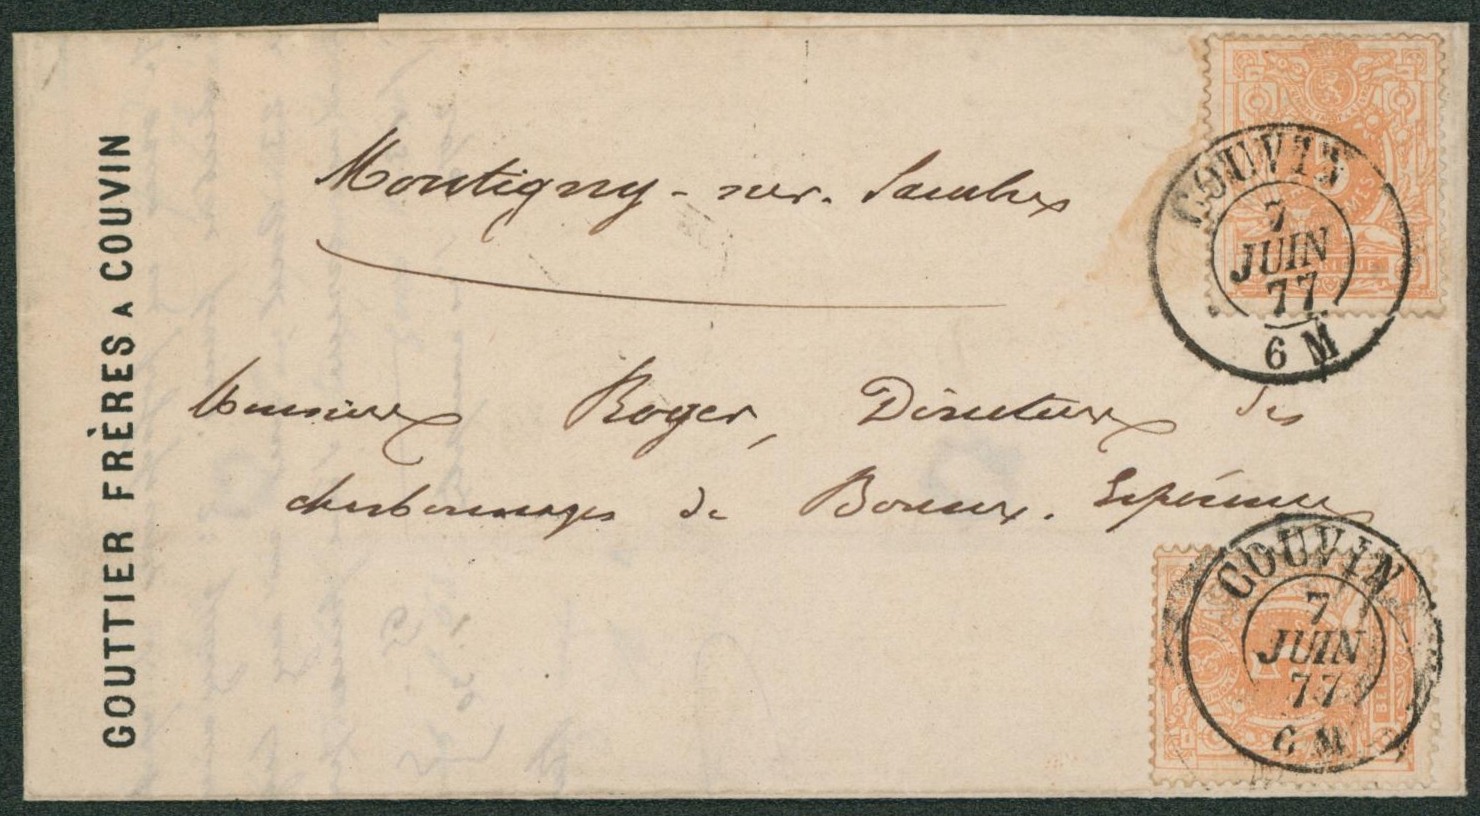 GOUTTIER FRÈRES A COUVIN
Montigny-sur-Sambre
Monsieur Roger, Directeur des
charbonnages de Bonne-Espérance
COUVIN
7
JUIN
77
6 M
COUVIN
7
JUIN
77
6 M